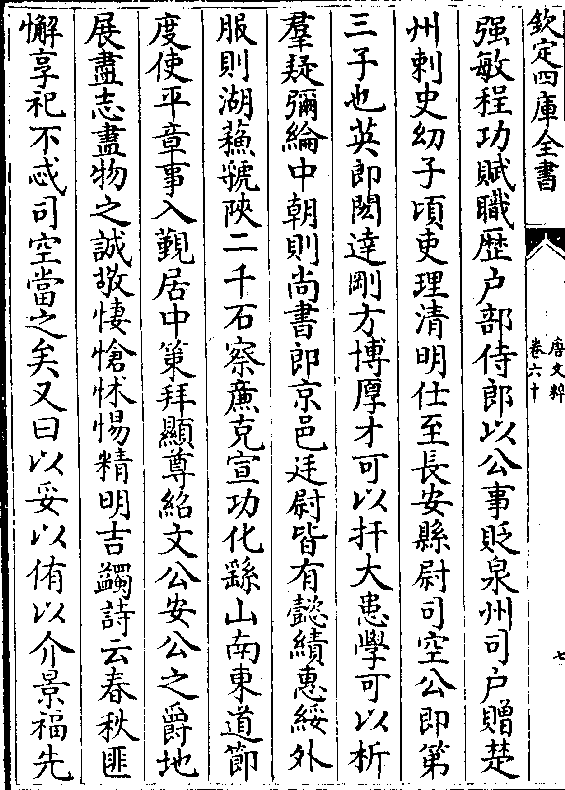 欽定四庫全書
唐文粹
卷六十
七
强敏程功賦職歴户部侍郎以公事貶泉州司户贈楚
州刺史幼子頃吏理清明仕至長安縣尉司空公即第
三子也英即閎達剛方博厚才可以扞大患學可以析
羣疑彌綸中朝則尚書郎京邑廷尉皆有懿績惠綏外
服則湖蘓虢陜二千石察亷克宣功化繇山南東道節
度使平章事入覲居中策拜顯尊紹文公安公之爵地
展盡志盡物之誠敬悽愴怵惕精明吉蠲詩云春秋匪
懈享祀不忒司空當之矣又曰以妥以侑以介景福先